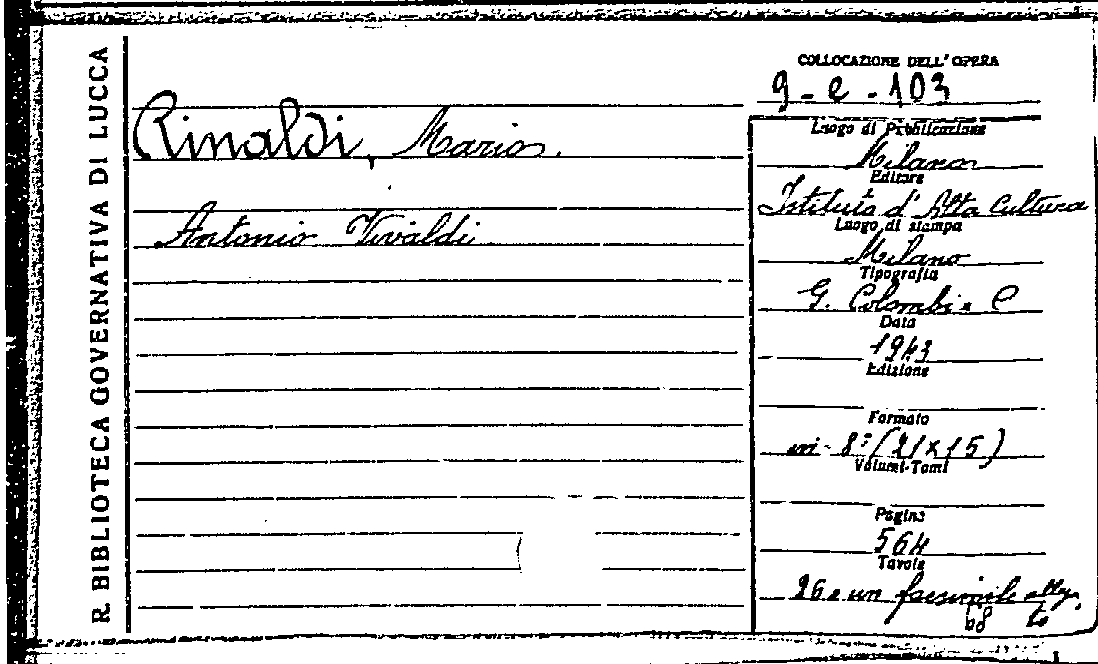 R. BIBLIOTECA GOVERNATIVA DI LUCCA
Rinaldi, Mario.
Antonio Vivaldi
COLLOCAZIONE DELL'OPERA
9-e-103
Luogo di Pubblicazione
Milano
Editore
Istituto d'Alta Cultura
Luogo di stampa
Milano
Tipografia
G. Colombi e C
Data
1943
Edizione
Formato
in-8° (21x15)
Volumi-Tomi
Pagine
564
Tavole
26 e un facsimile